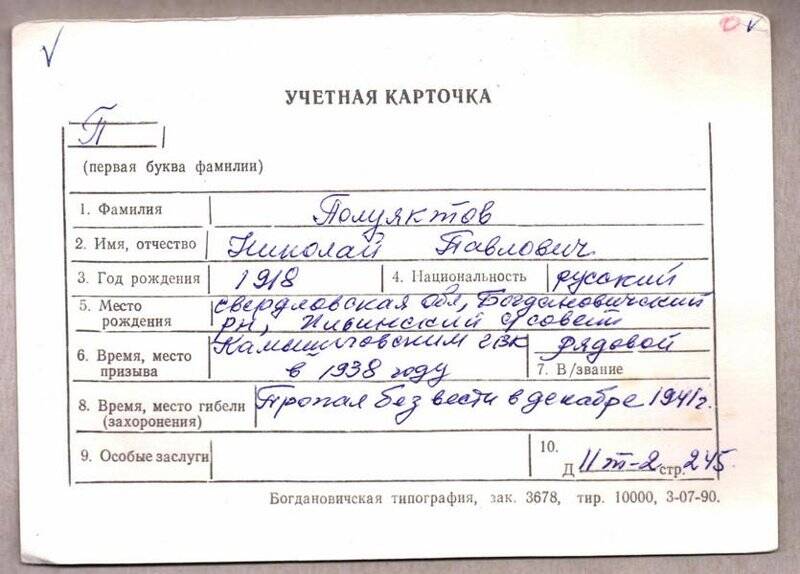 УЧЕТНАЯ КАРТОЧКА
П
(первая буква фамилии)
1. Фамилия Полуяктов
2. Имя, отчество Николай Павлович
3. Год рождения 1918 4. Национальность русский
5. Место рождения свердловская обл, Богдановичский
рн, Ильинский с/совет
6. Время, место призыва Камышловским ГВК
в 1938 году
рядовой
7. В/звание
8. Время, место гибели (захоронения) Пропал без вести в декабре 1941г.
9. Особые заслуги
10.
Д 11 т-2 стр. 245.
Богдановичская типография, зак. 3678, тир. 10000, 3-07-90.